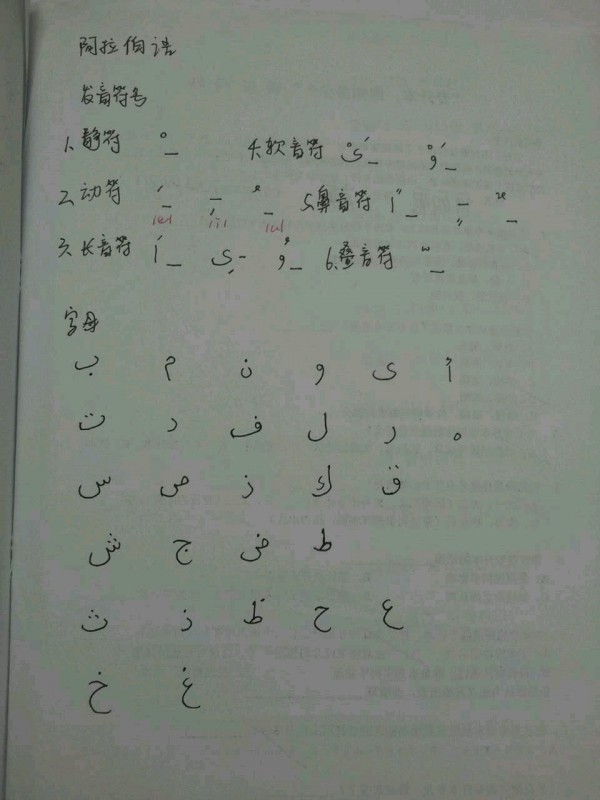 阿拉伯语
发音符号
1.静符 ْ_ 4.软音符 َىْ_ َوْ_
2.动符 َ_ ِ_ ُ_ 5.鼻音符 اً_ ٍ_ ٌ_
/a/ /i/ /u/
3.长音符 َا_ ِى_ ُو_ 6.叠音符 ّ_
字母
ب م ن و ى أ
ت د ف ل ر ه
س ص ز ك ق
ش ج ض ط
ث ذ ظ ح ع
خ غ